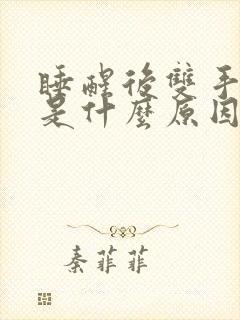 睡醒後雙手
是什麼原因
秦菲菲